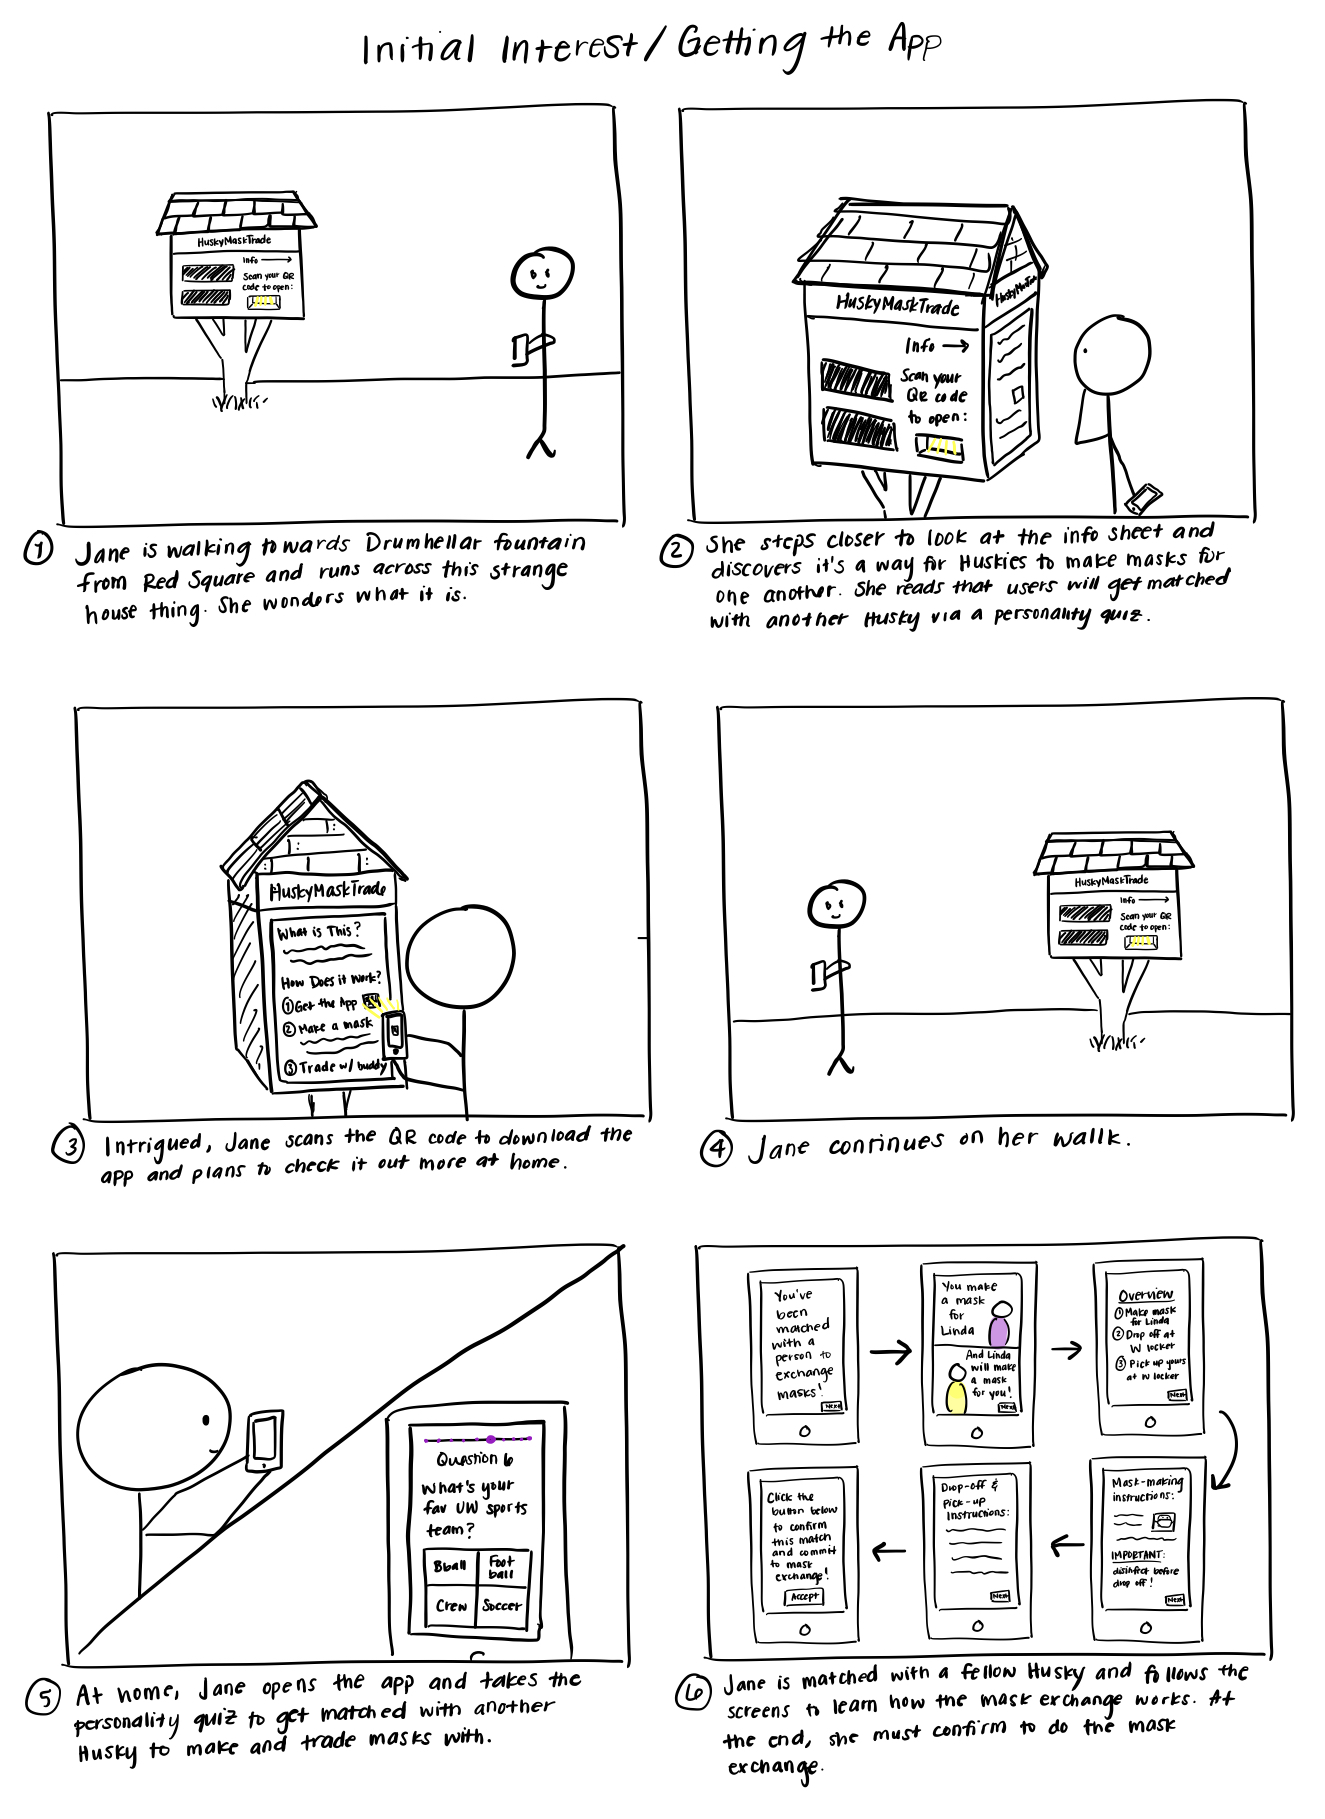 Initial Interest/Getting the App
HuskyMaskTrade
Info →
Scan your QR
code to open:
① Jane is walking towards Drumhellar fountain
from Red Square and runs across this strange
house thing. She wonders what it is.
HuskyMaskTrade
HuskyMaskTrade
Info →
Scan your
QR code
to open:
② She steps closer to look at the info sheet and
discovers it's a way for Huskies to make masks for
one another. She reads that users will get matched
with another Husky via a personality quiz.
HuskyMaskTrade
What is This?
How Does it Work?
① Get the App
② Make a mask
③ Trade w/ buddy
③ Intrigued, Jane scans the QR code to download the
app and plans to check it out more at home.
HuskyMaskTrade
Info →
Scan your QR
code to open:
④ Jane continues on her wallk.
Question 6
What's your
fav UW sports
team?
Bball
Foot
ball
Crew
Soccer
⑤ At home, Jane opens the app and takes the
personality quiz to get matched with another
Husky to make and trade masks with.
You've
been
matched
with a
person to
exchange
masks!
Next
You make
a mask
for
Linda
And Linda
will make
a mask
for you!
Next
Overview
① Make mask
for Linda
② Drop off at
W locker
③ Pick up yours
at W locker
Next
Mask-making
instructions:
IMPORTANT:
disinfect before
drop off!
Next
Drop-off &
Pick-up
Instructions:
Next
Click the
button below
to confirm
this match
and commit
to mask
exchange!
Accept
⑥ Jane is matched with a fellow Husky and follows the
screens to learn how the mask exchange works. At
the end, she must confirm to do the mask
exchange.